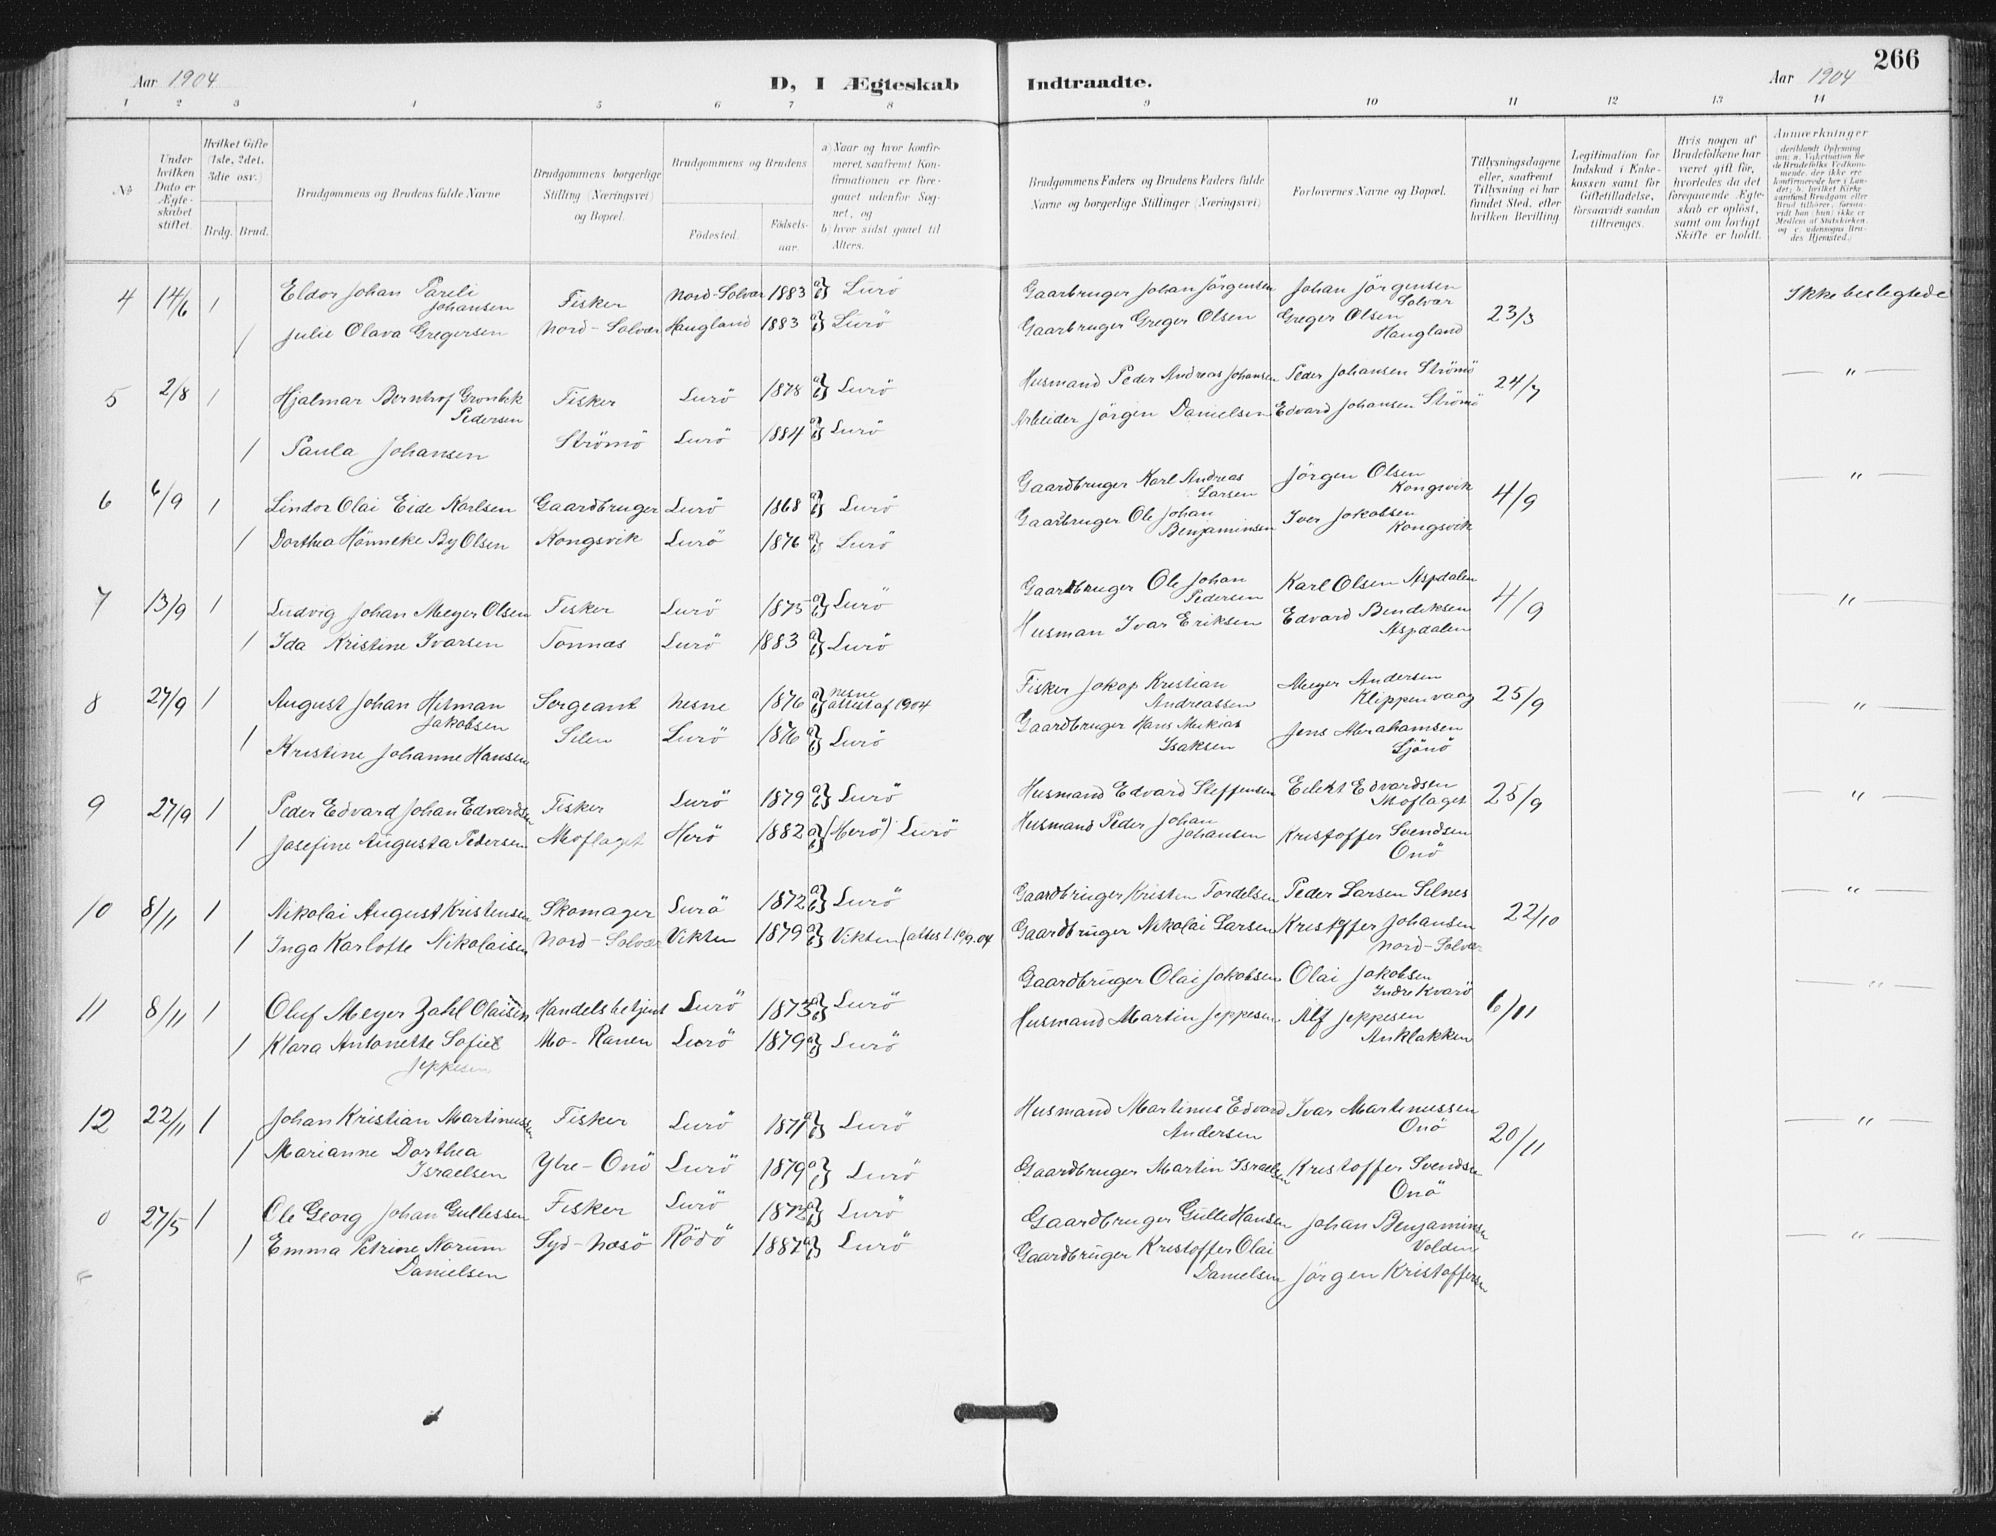 266
Aar 1904
D, I Ægteskab Indtraadte.
Aar 1904
1 2 3 4 5 6 7 8 9 10 11 12 13 14
No
Under hvilken Dato er Ægteskabet stiftet.
Hvilket Gifte (1ste, 2det, 3die osv.)
Brdg. Brud.
Brudgommens og Brudens fulde Navne
Brudgommens borgerlige Stilling (Næringsvei) og Bopæl.
Brudgommens og Brudens
Fødested.
Fødselsaar.
a) Naar og hvor konfirmeret, saafremt Konfirmationen er foregaaet udenfor Sognet, og
b) hvor sidst gaaet til Alters.
Brudgommens Faders og Brudens Faders fulde Navne og borgerlige Stillinger (Næringsvei)
Forlovernes Navne og Bopæl.
Tillysningsdagene eller, saafremt Tillysning ei har fundet Sted, efter hvilken Bevilling
Legitimation for Indskud i Enkekassen samt for Giftetilladelse, forsaavidt saadan tiltrænges.
Hvis nogen af Brudefolkene har været gift før, hvorledes da det foregaaende Ægteskab er opløst, samt om lovligt Skifte er holdt.
Anmerkninger
4 14/6 1 Eldor Johan Pareli Johansen Fisker Nord-Solvær 1883 a) b) Lurö Gaarbruger Johan Jörgensen Johan Jörgensen Solvær 23/3 Ikke beslegtede
1 Julie Olava Gregersen Nord-Solvær Haugland 1883 a) b) Lurö Gaarbruger Greger Olsen Greger Olsen Haugland
5 2/8 1 Hjalmar Bernhof Gronbek Pedersen Fisker Lurö 1878 a) b) Lurö Husmand Peder Andreas Johansen Peder Johansen Strömö 24/7 — " —
1 Paula Johansen Strömö Lurö 1884 a) b) Lurö Arbeider Jörgen Danielsen Edvard Johansen Strömö
6 6/9 1 Lindor Olai Eide Karlsen Gaardbruger Lurö 1868 a) b) Lurö Gaardbruger Karl Andreas Larsen Jörgen Olsen Kongsvik 4/9 — " —
1 Dorthea Hönneke By Olsen Kongsvik Lurö 1876 a) b) Lurö Gaarbruger Ole Johan Benjaminsen Iver Jakobsen Kongsvik
7 13/9 1 Ludvig Johan Meyer Olsen Fisker Lurö 1875 a) b) Lurö Gaardbruger Ole Johan Pedersen Karl Olsen Aspdalen 4/9 — " —
1 Ida Kristine Ivarsen Tonnes Lurö 1883 a) b) Lurö Husman Ivar Eriksen Edvard Bendiksen Aspdalen
8 27/9 1 August Johan Hitman Jakobsen Sergeant Nesne 1876 a) b) Nesne attest af 1904 Fisker Jakop Kristian Andreassen Meyer Andersen Klippenvaag 25/9 — " —
1 Kristine Johanne Hansen Selen Lurö 1876 a) b) Lurö Gaardbruger Hans Mekias Isaksen Jens Abrahamsen Sjönö
9 27/9 1 Peder Edvard Johan Edvardsen Fisker Lurö 1879 a) b) Lurö Husmand Edvard Steffensen Eilert Edvardsen Moflaget 25/9 — " —
1 Josefine Augusta Pedersen Moflaget Herö 1882 a) b) (Herö) Lurö Husmand Peder Johan Johansen Kristoffer Svendsen Onö
10 8/11 1 Nikolai August Kristensen Skomager Lurö 1872 a) b) Lurö Gaardbruger Kristen Tordelsen Peder Larsen Selnes 22/10 — " —
1 Inga Karlotte Nikolaisen Nord-Solvær Vikten 1879 a) b) Vikten (attest 10/9.04 Gaardbruger Nikolai Larsen Kristoffer Johansen Nord-Solvær
11 8/11 1 Oluf Meyer Zahl Olaisen Handelsbetjent Lurö 1873 a) b) Lurö Gaardbruger Olai Jakobsen Olai Jakobsen Indre Kvarö 6/11 — " —
1 Klara Antonette Sofie Jeppesen Mo-Ranen Lurö 1879 a) b) Lurö Husmand Martin Jeppesen Alf Jeppesen Anklakken
12 22/11 1 Johan Kristian Martinussen Fisker Lurö 1871 a) b) Lurö Husmand Martinus Edvard Andersen Ivar Martinussen Onö 20/11 — " —
1 Marianne Dorthea Israelsen Ytre-Onö Lurö 1879 a) b) Lurö Gaardbruger Martin Israelsen Kristoffer Svendsen Onö
0 27/5 1 Ole Georg Johan Gullessen Fisker Lurö 1872 a) b) Lurö Gaardbruger Gulle Hansen Johan Benjaminsen Volden — " —
1 Emma Petrine Norum Danielsen Syd-Nesö Rödö 1882 a) b) Lurö Gaardbruger Kristoffer Olai Danielsen Jörgen Kristoffersen